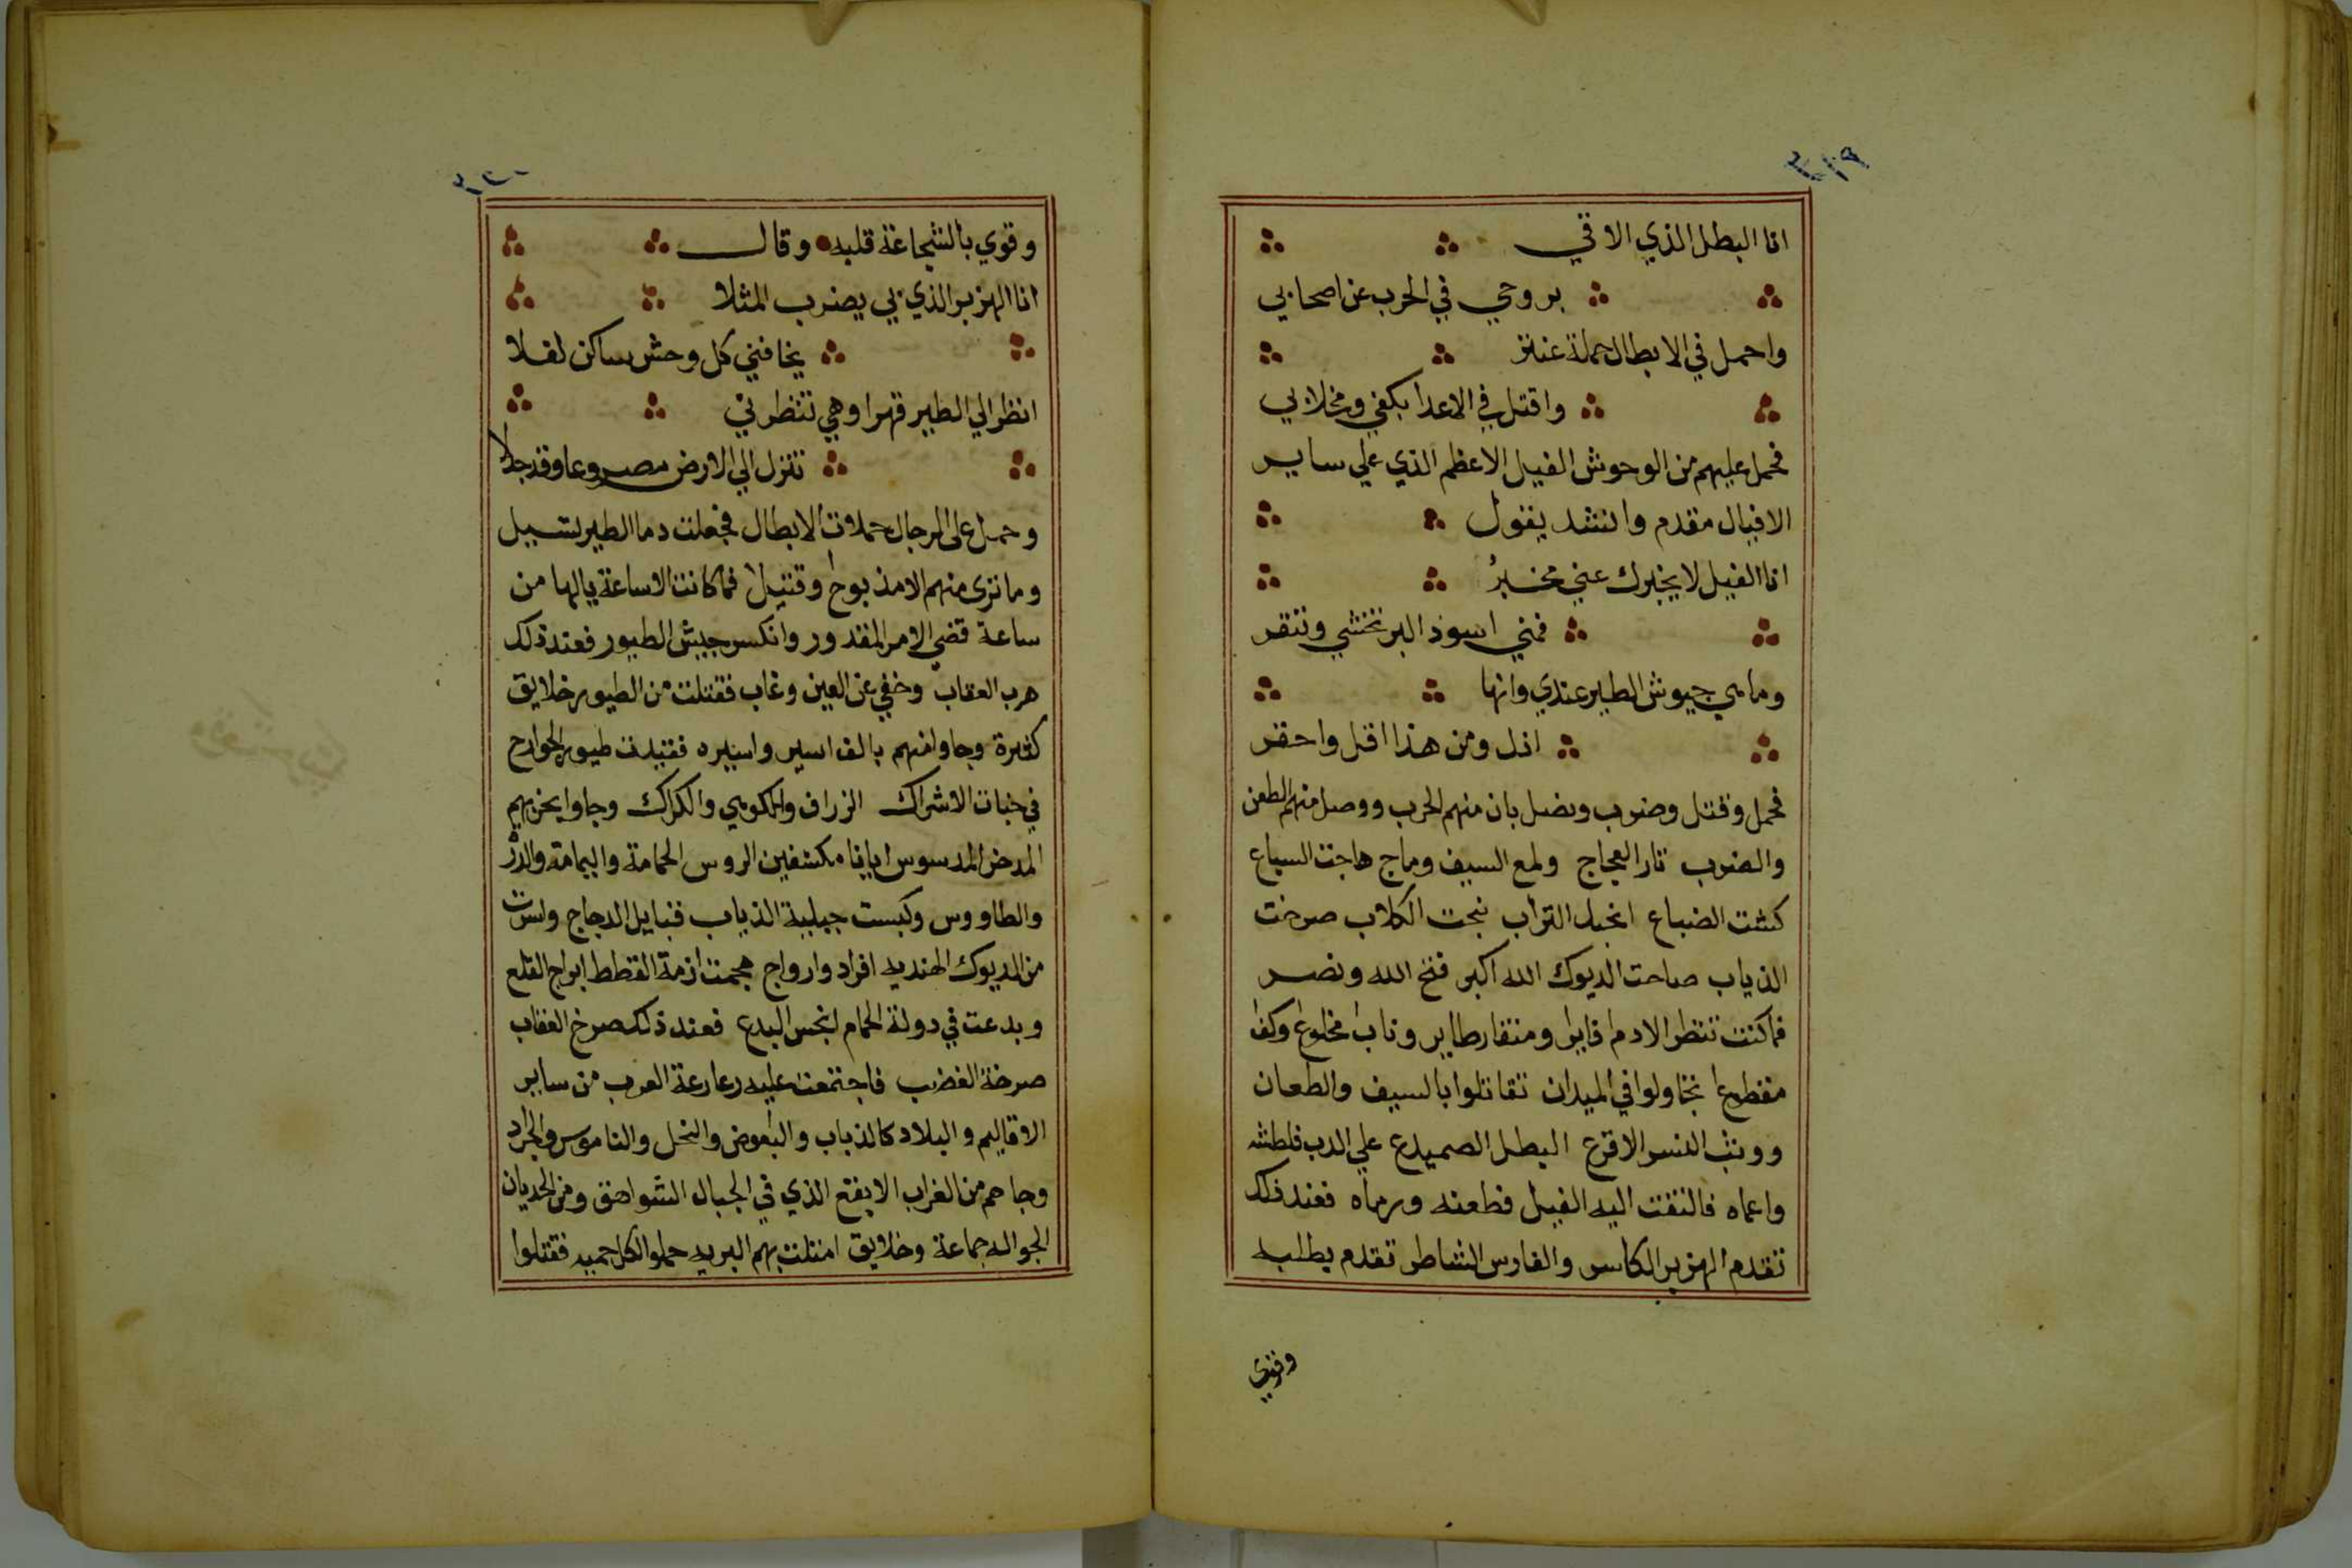 ٣١٩
انا البطل الذي الاقي
بروحي في الحرب عن اصحابي
واحمل في الابطال حملة عنتر
واقتل في الاعدا بكفي ومخلابي
فحمل عليهم من الوحوش الفيل الاعظم الذي علي ساير
الافيال مقدم وانشد يقول
انا الفيل لا يخبرك عني مخبرُ
فمني اسود البر تخشي وتنفر
وما هي جيوش الطير عندي وانها
اذل ومن هذا اقل واحقر
فحمل وقتل وضرب ونصل بان منهم الحرب ووصل منهم الطعن
والضرب ثار العجاج ولمع السيف وماج هاجت السباع
كشت الضباع انجبل التراب نبحت الكلاب صرخت
الذياب صاحت الديوك الله اكبر فتح الله ونصر
فما كنت تنظر الا دم فاير ومنقار طاير وناب مخلوع وكف
مقطوع تجاولوا في الميدان تقاتلوا بالسيف والطعان
ووثب النسر الاقرع البطل الصميدع علي الدب فلطشه
واعماه فالتفت اليه الفيل فطعنه ورماه فعند ذلك
تقدم الهزبر الكاسر والفارس الشاطر تقدم بطلبه
وقوي
٣٢٠
وقوي بالشجاعة قلبه وقال
انا الهزبر الذي بي يضرب المثلا
يخافني كل وحش ساكن لفلا
انظر الي الطير قهرا وهي تنظرني
تنزل الي الارض مصروعا وقد جلا
وحمل على الرجال حملات الابطال فجعلت دما الطير تسيل
وما ترى منهم الا مذبوح وقتيل فما كانت الا ساعة يالها من
ساعة قضي الامر المقدور وانكسر جيش الطيور فعند ذلك
هرب العقاب وخفي عن العين وغاب فقتلت من الطيور خلايق
كثيرة وجاوا منهم بالف اسير واسيره فقيدت طيور الجوارح
في حبات الاشراك الزراف والكوهي والكراك وجاوا بحزبهم
المدسوس ايانا مكشفين الروس الحمامة واليمامة والدرُ
والطاووس وكبست جيلية الذياب قبايل الدجاج واسرت
من الديوك الهنديه افراد وازواج هجمت ازمة القطط ابراج القلع
وبدعت في دولة الحمام انحس البدع فعند ذلك صرخ العقاب
صرخة الغضب فاجتمعت عليه رعارعة العرب من ساير
الاقاليم والبلاد كالذباب والبعوض والنحل والناموس والجراد
وجاهم من الغراب الابقع الذي في الجبال الشواهق ومن الحديان
الجواله جماعة وخلايق امتلت بهم البريه حملوا الكل حميه فقتلوا